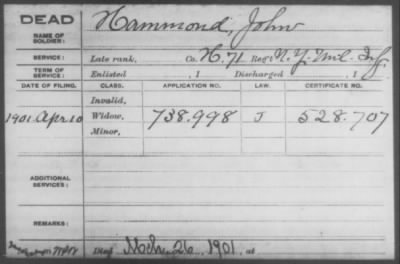 DEAD Hammond, John
NAME OF SOLDIER:
SERVICE: Late rank, Co. H. 71 Reg't N.Y. Mil. Inf.
TERM OF SERVICE: Enlisted , 1 Discharged , 1
DATE OF FILING. CLASS. APPLICATION NO. LAW. CERTIFICATE NO.
Invalid,
1901. Apr. 10 Widow, 738.998 J 528.707
Minor,
ADDITIONAL SERVICES:
REMARKS:
Died Mch. 26, 1901, at